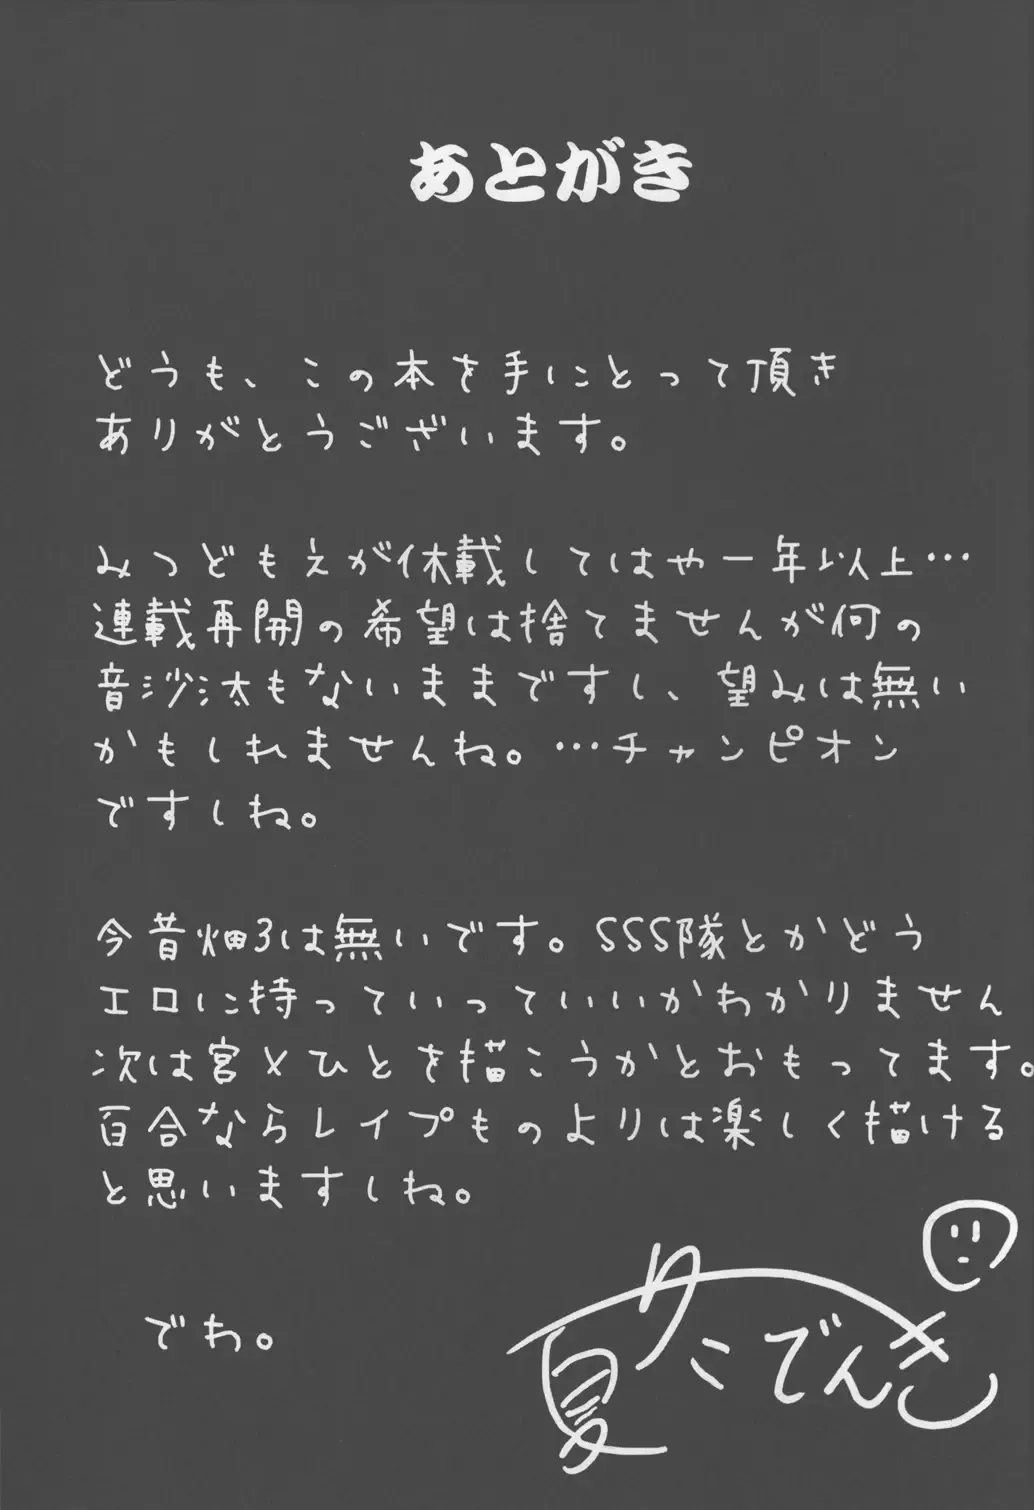 あとがき
どうも、この本を手にとって頂き
ありがとうございます。
みつどもえが休載してはや一年以上…
連載再開の希望は捨てませんが何の
音沙汰もないままですし、望みは無い
かもしれませんね。…チャンピオン
ですしね。
今昔畑3は無いです。SSS隊とかどう
エロに持っていっていいかわかりません
次は宮×ひとを描こうかとおもってます。
百合ならレイプものよりは楽しく描ける
と思いますしね。
でわ。
夏のこでんき